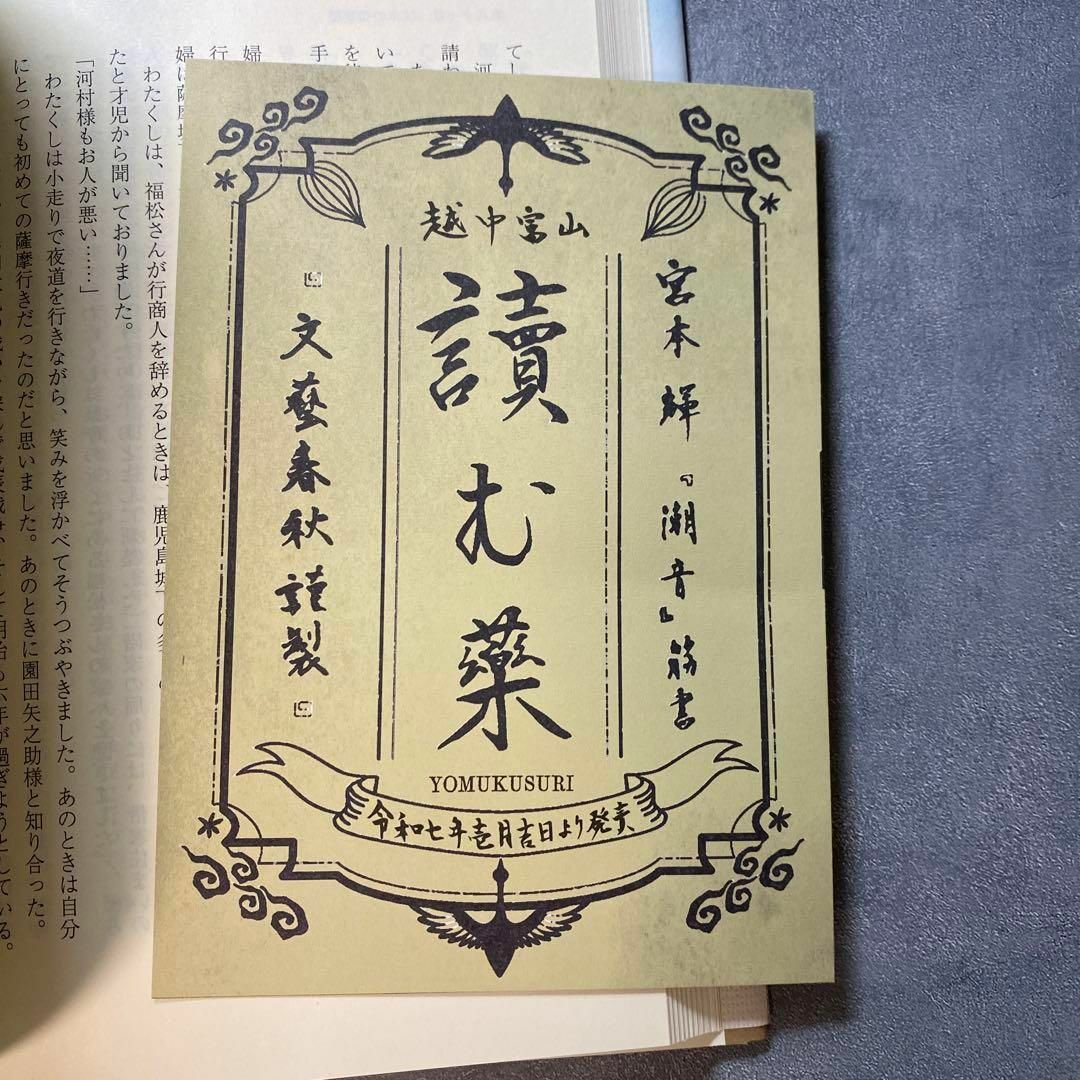 越中富山
宮本輝『潮音』筋書
讀む藥
文藝春秋謹製
YOMUKUSURI
令和七年壱月吉日より発売
わたくしは、福松さんが行商人を辞めるときは、鹿児島城下の
たと才児から聞いておりました。
「河村様もお人が悪い……」
わたくしは小走りで夜道を行きながら、笑みを浮かべてそうつぶやきました。あのときは自分
にとっても初めての薩摩行きだったのだと思いました。あのときに園田矢之助様と知り合った。